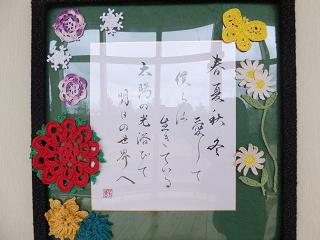 春夏秋冬
愛して
僕らは
生きている
太陽の光浴びて
明日の世界へ